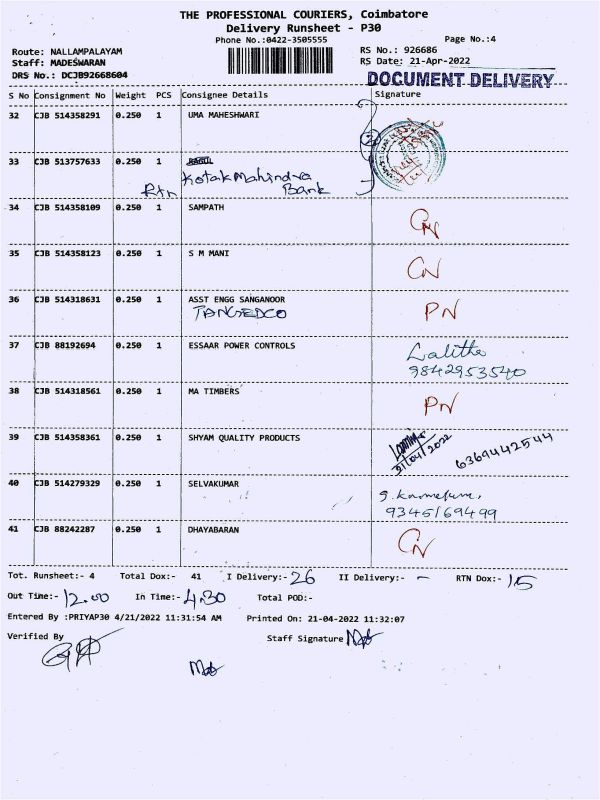 THE PROFESSIONAL COURIERS, Coimbatore
Delivery Runsheet - P30
Phone No.:0422-3505555
Page No.:4
Route: NALLAMPALAYAM
RS No.: 926686
Staff: MADESWARAN
RS Date: 21-Apr-2022
DRS No.: DCJB92668604
DOCUMENT DELIVERY
S No Consignment No Weight PCS Consignee Details Signature
32 CJB 514358291 0.250 1 UMA MAHESHWARI
33 CJB 513757633 0.250 1
Rtn Kotak Mahindra
Bank
34 CJB 514358109 0.250 1 SAMPATH CN
35 CJB 514358123 0.250 1 S M MANI CN
36 CJB 514318631 0.250 1 ASST ENGG SANGANOOR PN
TANGEDCO
37 CJB 88192694 0.250 1 ESSAAR POWER CONTROLS Lalitha
9842953540
38 CJB 514318561 0.250 1 MA TIMBERS PN
39 CJB 514358361 0.250 1 SHYAM QUALITY PRODUCTS
21/04/2022 6369442544
40 CJB 514279329 0.250 1 SELVAKUMAR
9345169499
41 CJB 88242287 0.250 1 DHAYABARAN CN
Tot. Runsheet:- 4 Total Dox:- 41 I Delivery:- 26 II Delivery:- - RTN Dox:- 15
Out Time:- 12.00 In Time:- 4.30 Total POD:-
Entered By :PRIYAP30 4/21/2022 11:31:54 AM Printed On: 21-04-2022 11:32:07
Verified By Staff Signature